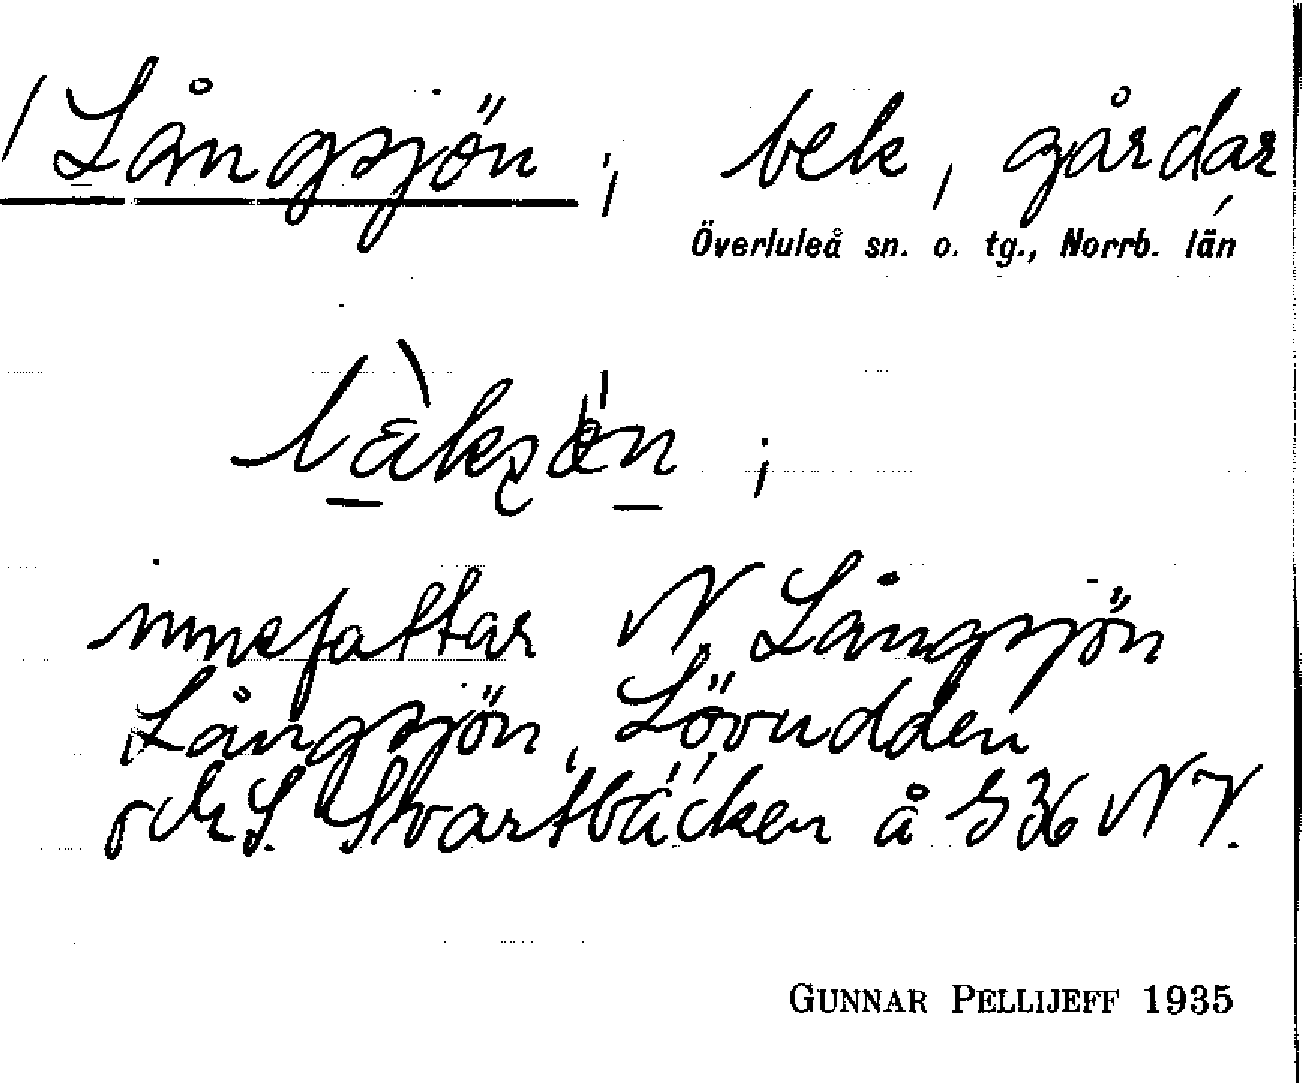 / Långsjön ; bek, gårdar
Överluleå sn. o. tg., Norrb. län
innefattar N. Långsjön
Långsjön, Lövudden
och S. Svartbäcken å 536 NV.
GUNNAR PELLIJEFF 1935